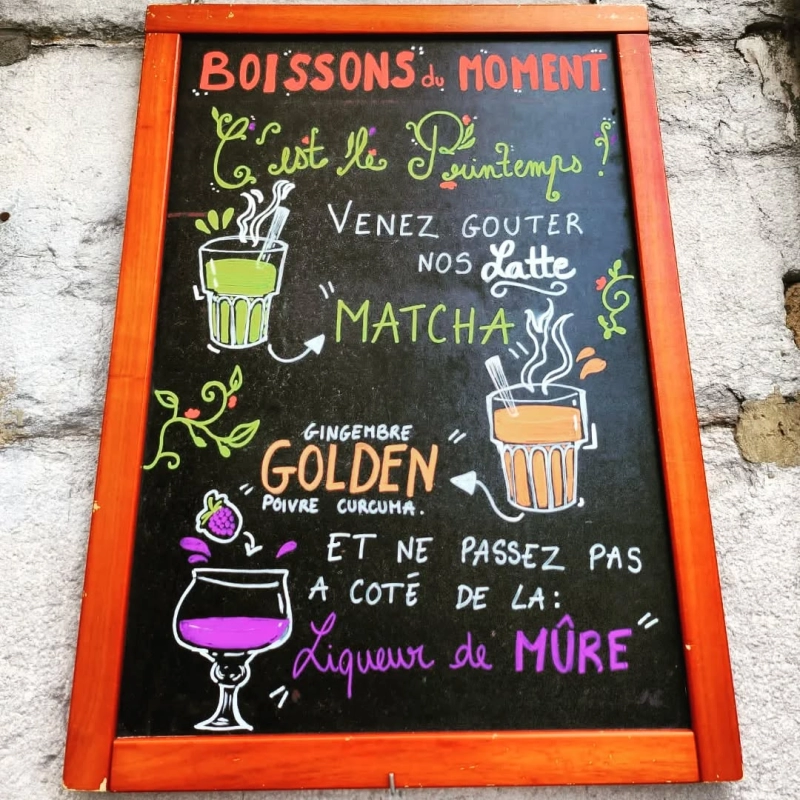 BOISSONS du MOMENT
C'est le Printemps !
VENEZ GOUTER
NOS Latte
MATCHA
GINGEMBRE
GOLDEN
POIVRE CURCUMA.
ET NE PASSEZ PAS
A COTÉ DE LA:
Liqueur de MÛRE